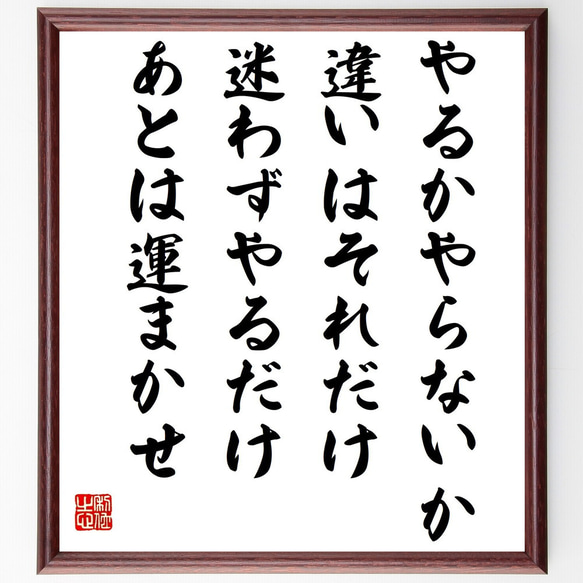 やるかやらないか
違いはそれだけ
迷わずやるだけ
あとは運まかせ